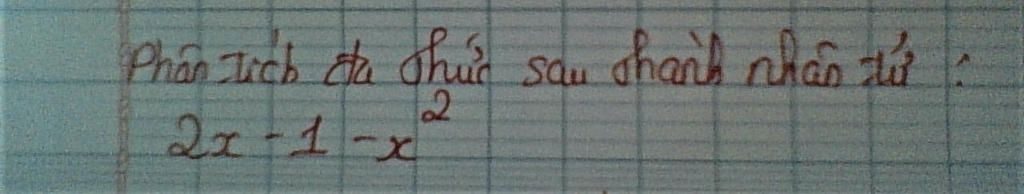 Phân tích đa thức sau thành nhân tử :
2x - 1 - x²